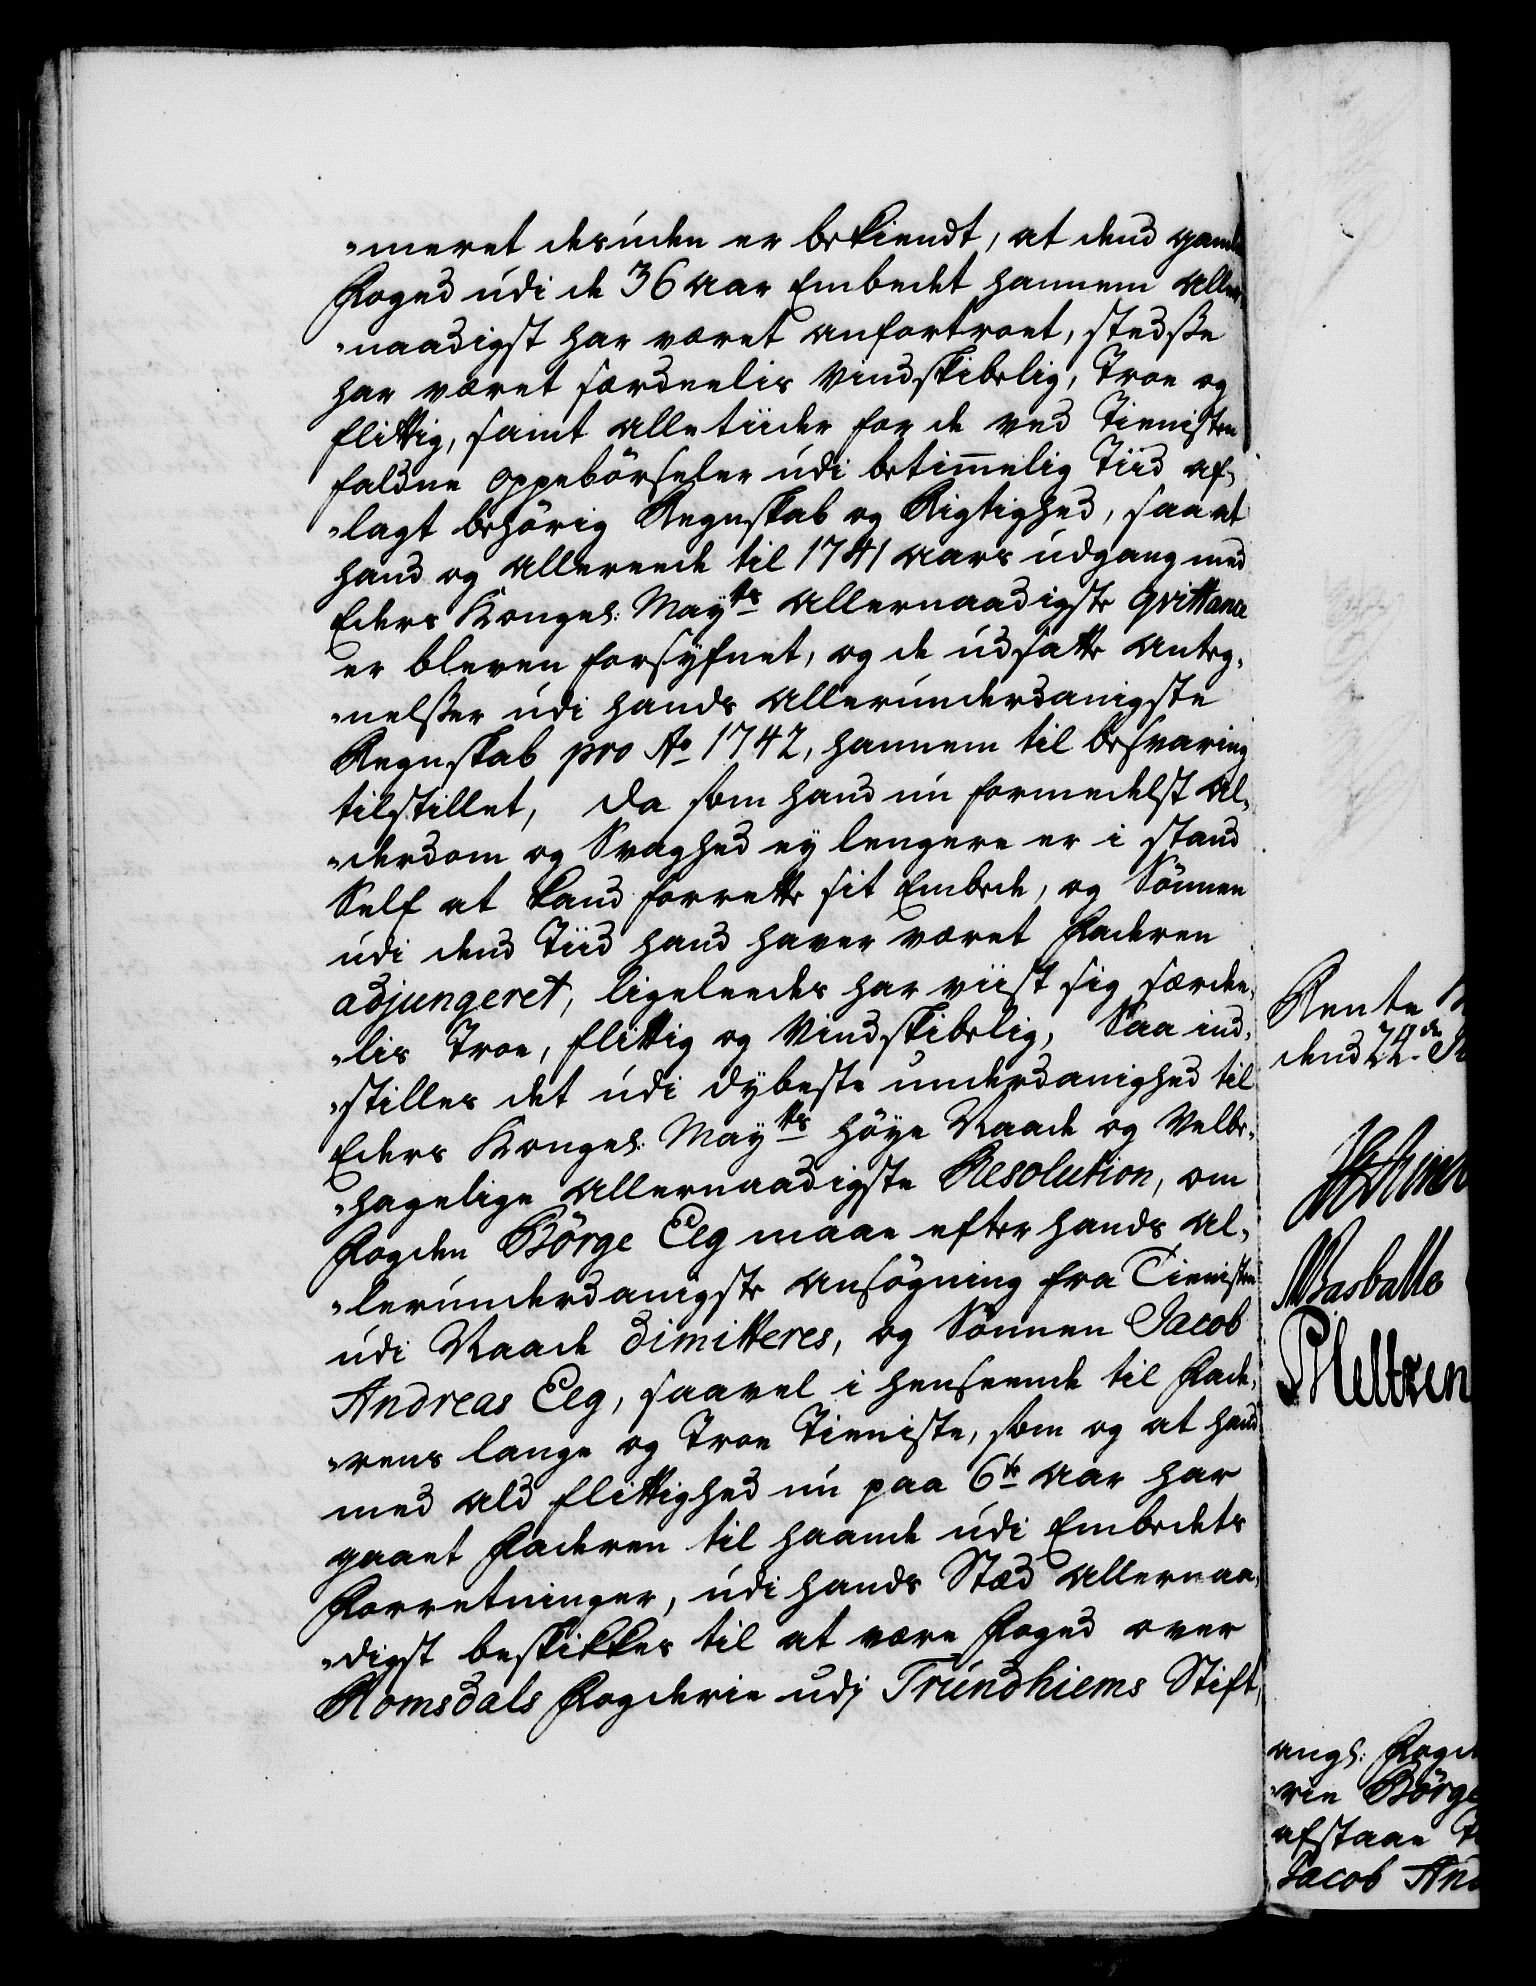 „meret desúden er bekiendt, at dend gamle
Foged údi de 36 aar Embedet hannem aller„
„naadigst har været anfortroet, stedsse
har været særdeelis Vindskibelig, Troe og
flittig, samt alletiider for de ved Tienisten
faldne oppebörseler údi betimmelig Tiid af„
„lagt behörig Regnskab og Rigtighed, saa at
hand og allereede til 1741 aars údgang med
Eders Kongel: Mayts allernaadigste qvittance
er bleven forsÿfnet, og de údsatte anteg„
„nelsser údi hands allerúnderdanigste
Regnskab pro Ao 1742, hannem til besvaring
tilstillet, da som hand nú formedelst al„
„derdom og Svaghed ey lengere er i stand
Self at kand forrette sit Embede, og Sönnen
údi dend Tiid hand haver været Faderen
adjungeret, ligeleedes har viist sig særdee„
„lis Troe, flittig og Vindskibelig, Saa ind„
„stilles det údi dÿbeste underdanighed til
Eders Kongel: Mayts höÿe Naade og Velbe„
„hagelige allernaadigste Resolution, om
Fogden Börge Eeg maae efter hands al„
„lerúnderdanigste ansögning fra Tienisten
údi Naade dimitteres, og Sönnen Jacob
Andreas Eeg, saavel i henseende til Fade„
„rens lange og Troe Tieniste, som og at hand
med ald flittighed nú paa 6te aar har
gaaet Faderen til haande údi Embedets
Forretninger, údi hands Stæd allernaa„
„digst beskikkes til at være Foged over
Romsdals Fogderie udj Trúndhiems Stift,
Rente
dend 22de
Basballe
angl: Fogd
„rie Börge
afstaae
Jacob And